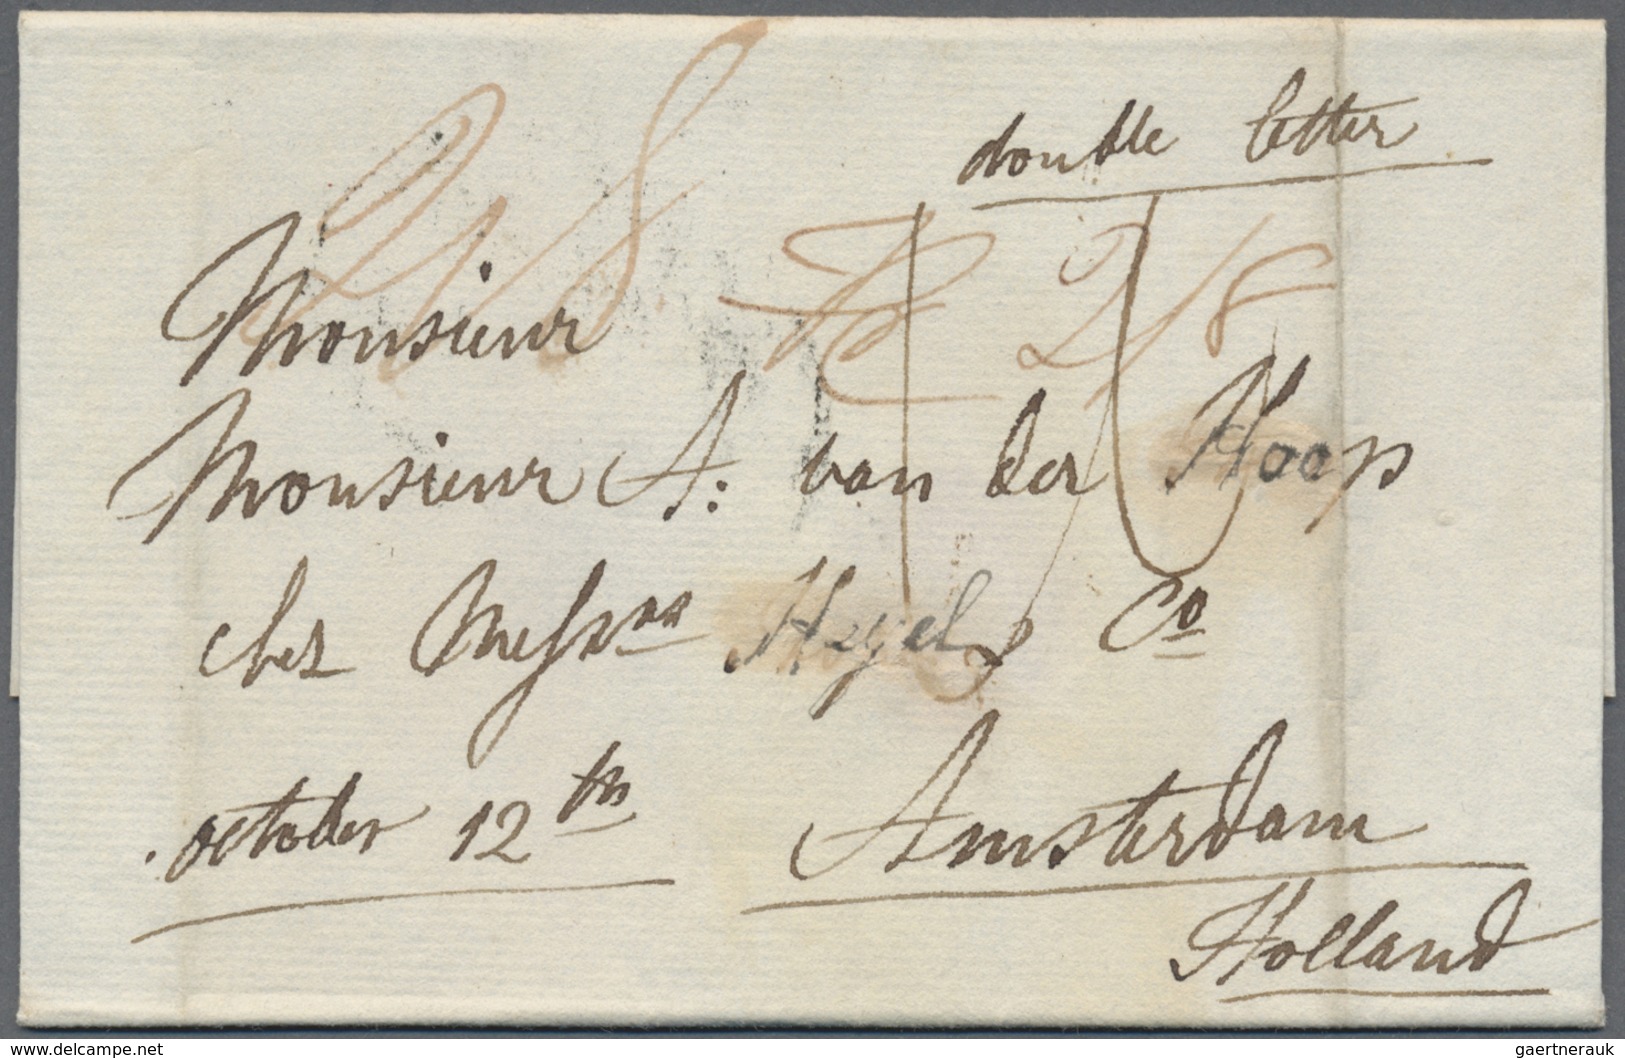 double letter
2/8 2/8
Monsieur
Monsieur A: van der Hoop
chez Messrs Hegel & Co
october 12th Amsterdam
Holland
www.delcampe.net gaertnerauk